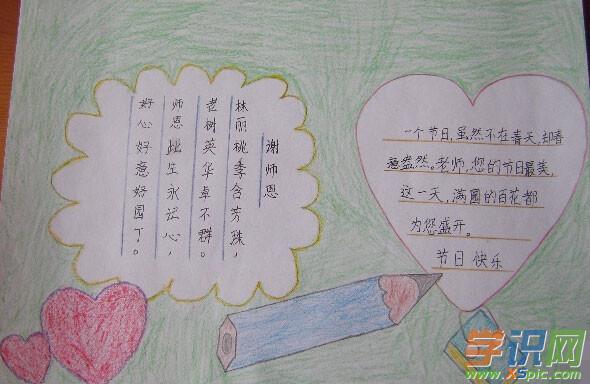 谢师恩
林丽桃季含芳珠，
老树英华卓不群。
师恩此生永记心，
好心好意好园丁。
一个节日，虽然不在春天，却春
意盎然。老师，您的节日最美，
这一天，满园的百花都
为您盛开。
节日 快乐
学识网
www.XSpic.com